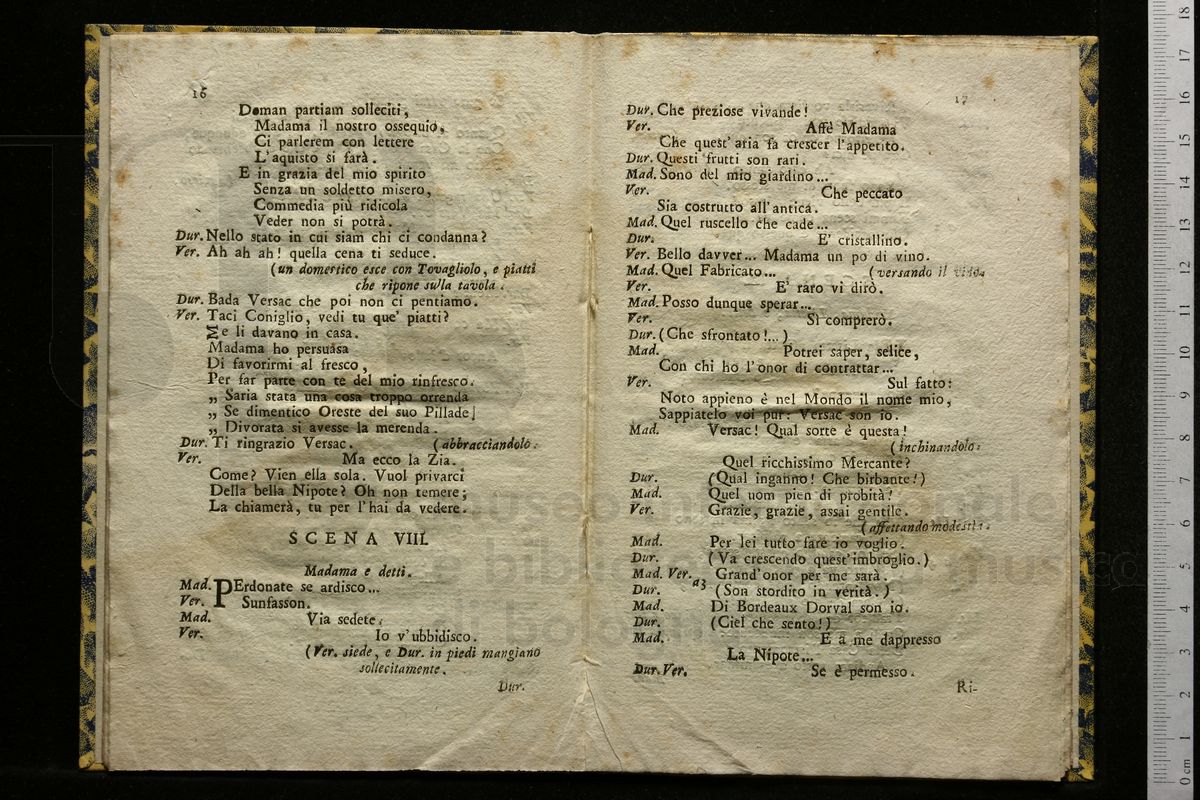 16
Doman partiam solleciti,
Madama il nostro ossequio,
Ci parlerem con lettere
L'aquisto si farà.
E in grazia del mio spirito
Senza un soldetto misero,
Commedia più ridicola
Veder non si potrà.
Dur. Nello stato in cui siam chi ci condanna?
Ver. Ah ah ah! quella cena ti seduce.
(un domestico esce con Tovagliolo, e piatti
che ripone sulla tavola.
Dur. Bada Versac che poi non ci pentiamo.
Ver. Taci Coniglio, vedi tu que' piatti?
Me li davano in casa.
Madama ho persuasa
Di favorirmi al fresco,
Per far parte con te del mio rinfresco.
„ Saria stata una cosa troppo orrenda
„ Se dimentico Oreste del suo Pillade,
„ Divorata si avesse la merenda.
Dur. Ti ringrazio Versac. (abbracciandolo.
Ver. Ma ecco la Zia.
Come? Vien ella sola. Vuol privarci
Della bella Nipote? Oh non temere;
La chiamerà, tu per l'hai da vedere.
SCENA VIII.
Madama e detti.
Mad. PErdonate se ardisco...
Ver. Sunfasson.
Mad. Via sedete.
Ver. Io v'ubbidisco.
(Ver. siede, e Dur. in piedi mangiano
sollecitamente.
Dur.
17
Dur. Che preziose vivande!
Ver. Affè Madama
Che quest'aria fa crescer l'appetito.
Dur. Questi frutti son rari.
Mad. Sono del mio giardino...
Ver. Che peccato
Sia costrutto all'antica.
Mad. Quel ruscello che cade...
Dur. E' cristallino.
Ver. Bello davver... Madama un po di vino.
Mad. Quel Fabricato... (versando il vino.
Ver. E' raro vi dirò.
Mad. Posso dunque sperar...
Ver. Sì comprerò.
Dur. (Che sfrontato!...)
Mad. Potrei saper, felice,
Con chi ho l'onor di contrattar...
Ver. Sul fatto:
Noto appieno è nel Mondo il nome mio,
Sappiatelo voi pur: Versac son io.
Mad. Versac! Qual sorte è questa!
(inchinandolo.
Quel ricchissimo Mercante?
Dur. (Qual inganno! Che birbante!)
Mad. Quel uom pien di probità!
Ver. Grazie, grazie, assai gentile.
(affettando modestia.
Mad. Per lei tutto fare io voglio.
Dur. (Va crescendo quest'imbroglio.)
Mad. Ver. a3 Grand'onor per me sarà.
Dur. (Son stordito in verità.)
Mad. Di Bordeaux Dorval son io.
Dur. (Ciel che sento!)
Mad. E a me dappresso
La Nipote...
Dur. Ver. Se è permesso.
Ri-